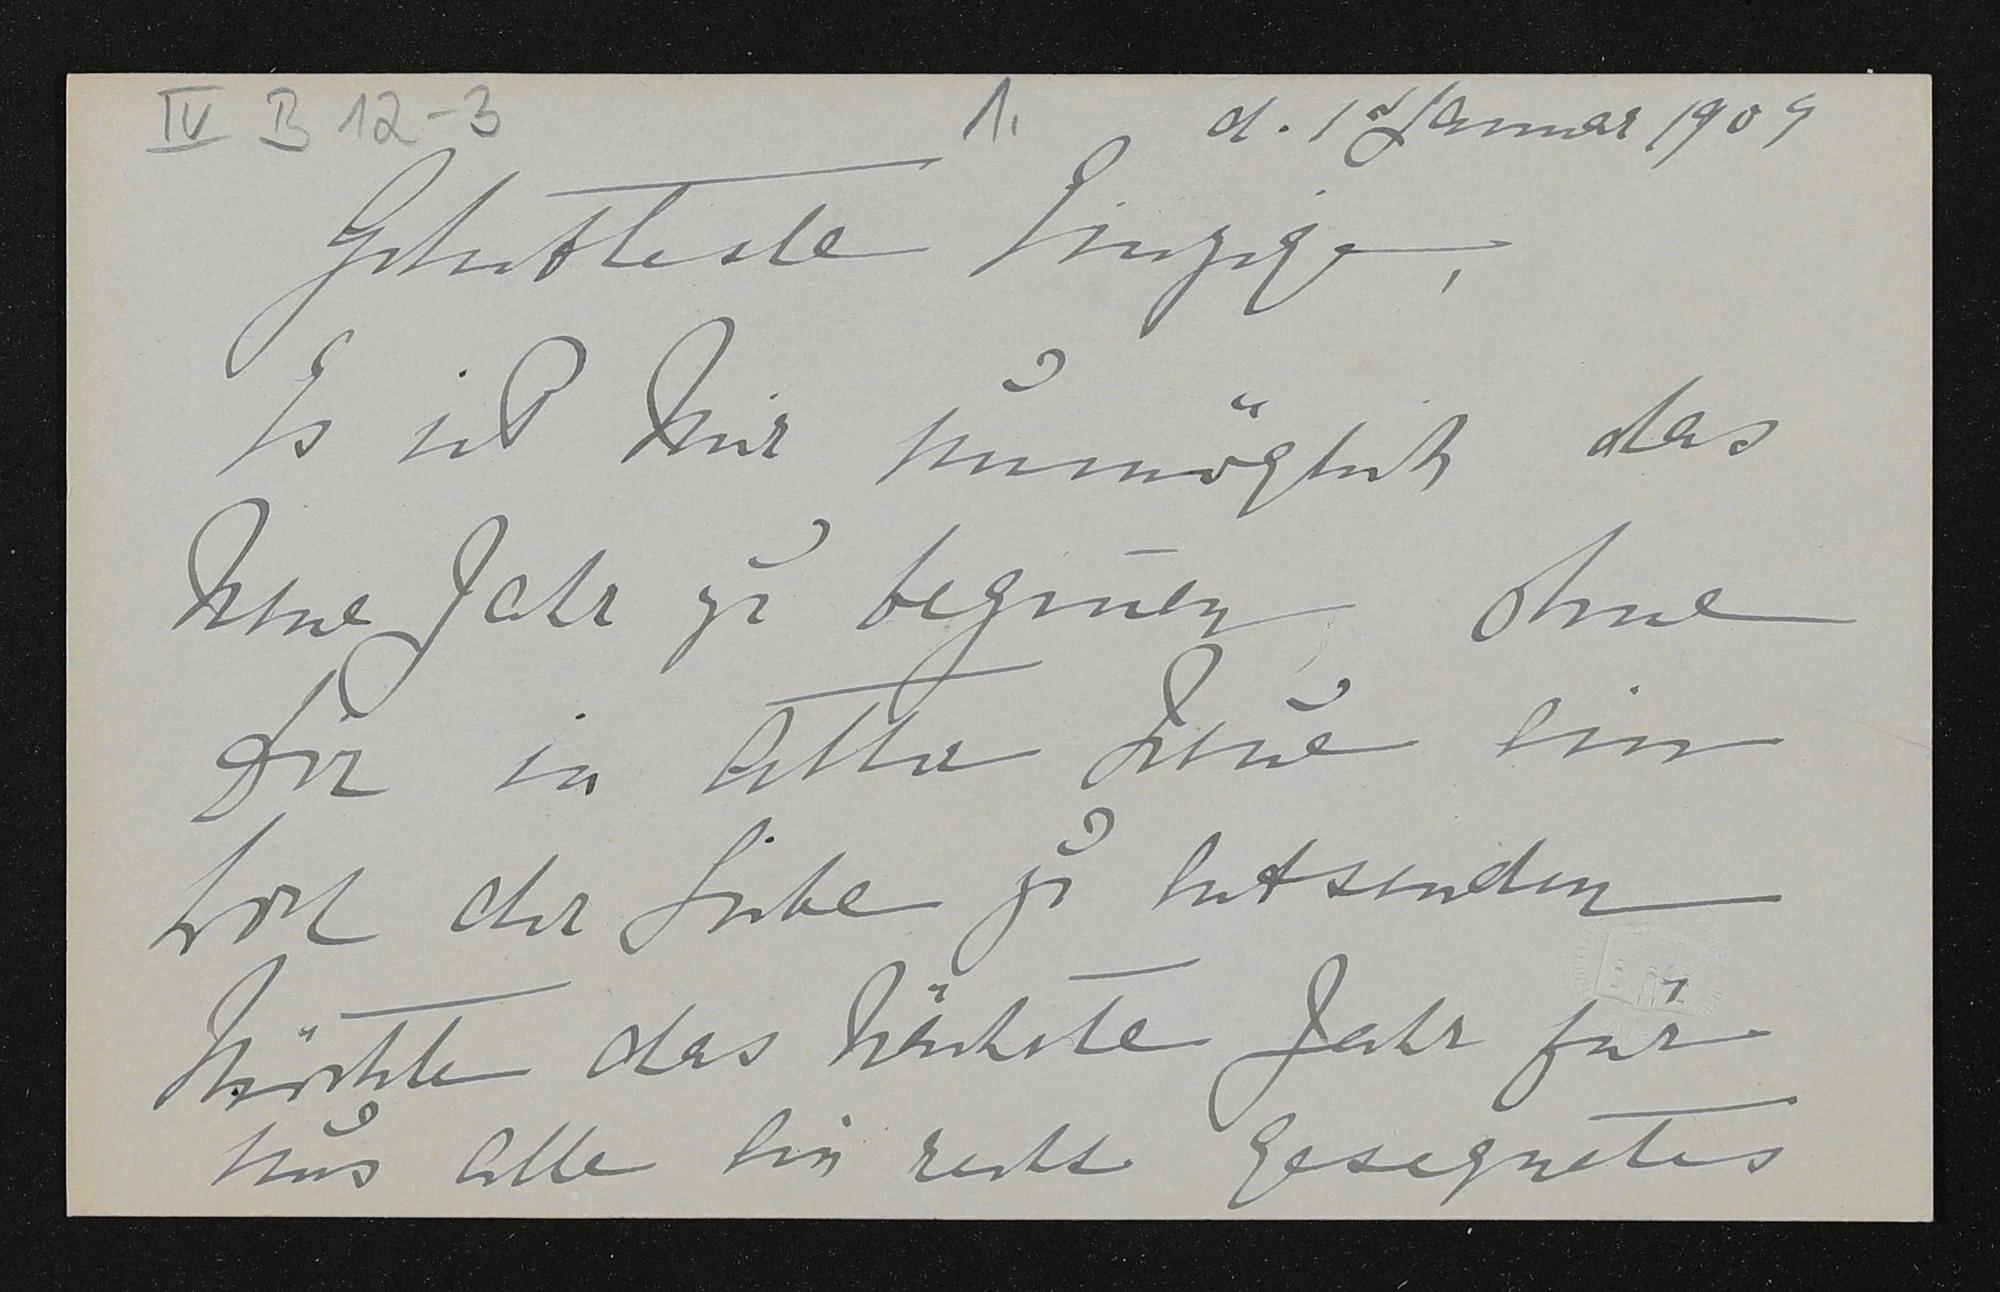 IV B 12-3 1. d. 1t Januar 1909
Geliebteste Einzige,
Es ist Mir unmöglich das
Neue Jahr zu begin̄en ohne
Dir in Alter Treue ein
Wort der Liebe zu entsenden
Möchte das Nächste Jahr für
uns Alle ein recht gesegnetes